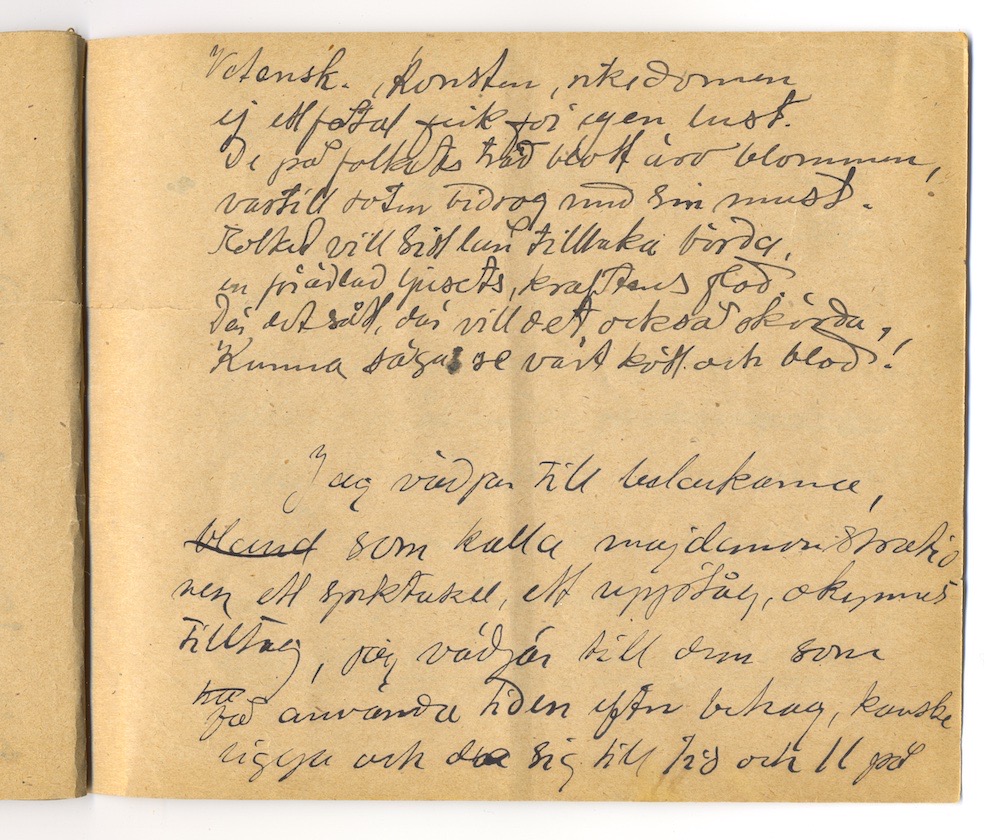 Vetensk. , Konsten, rikedomen
ej ett fåtal fick för egen lust.
De på folkets träd blott äro blommen,
vartill roten bidrog med sin must.
Folket vill sist len tillbaka börda,
en förädlad ljusets, kraftens flod.
Där det sått, där vill det också skörda,
Kunna säga: se vårt kött och blod!
Jag vädjar till belackarna,
bland som kalla majdemonstratio
nen ett spektakel, ett upptåg, okynnes
tilltag, jag vädjar till dem som
ha
få använda tiden efter behag, kanske
ligga och dra sig till 1/2 10 och 11 på